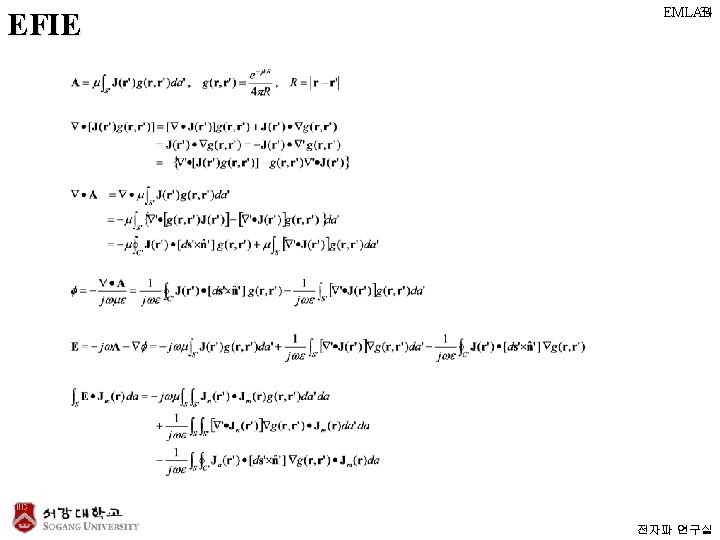 EFIE
EMLAB 34
A = μ∫_S' J(r')g(r,r')da' , g(r,r') = e^{-jkR}/4πR , R = |r − r'|
∇•[J(r')g(r,r')] = [∇•J(r')]g(r,r') + J(r')•∇g(r,r')
= J(r')•∇g(r,r') = −J(r')•∇'g(r,r')
= −{∇'•[J(r')g(r,r')] − g(r,r')∇'•J(r')}
∇•A = ∇•μ∫_S' J(r')g(r,r')da'
= −μ∫_S' {∇'•[g(r,r')J(r')] − [∇'•J(r')]g(r,r')}da'
= −μ∮_C' J(r')•[ds'×n̂']g(r,r') + μ∫_S' [∇'•J(r')]g(r,r')da'
φ = −∇•A/jωμε = 1/jωε ∮_C' J(r')•[ds'×n̂']g(r,r') − 1/jωε ∫_S' [∇'•J(r')]g(r,r')da'
E = −jωA − ∇φ = −jωμ∫_S' J(r')g(r,r')da' + 1/jωε ∫_S' [∇'•J(r')]∇g(r,r')da' − 1/jωε ∮_C' J(r')•[ds'×n̂']∇g(r,r')
∫_S E•J_m(r)da = −jωμ∫_S∫_S' J_n(r')•J_m(r)g(r,r')da'da
+ 1/jωε ∫_S∫_S' [∇'•J_n(r')]∇g(r,r')•J_m(r)da'da
− 1/jωε ∫_S∮_C' J_n(r')•[ds'×n̂']∇g(r,r')•J_m(r)da
서강대학교
SOGANG UNIVERSITY
전자파 연구실